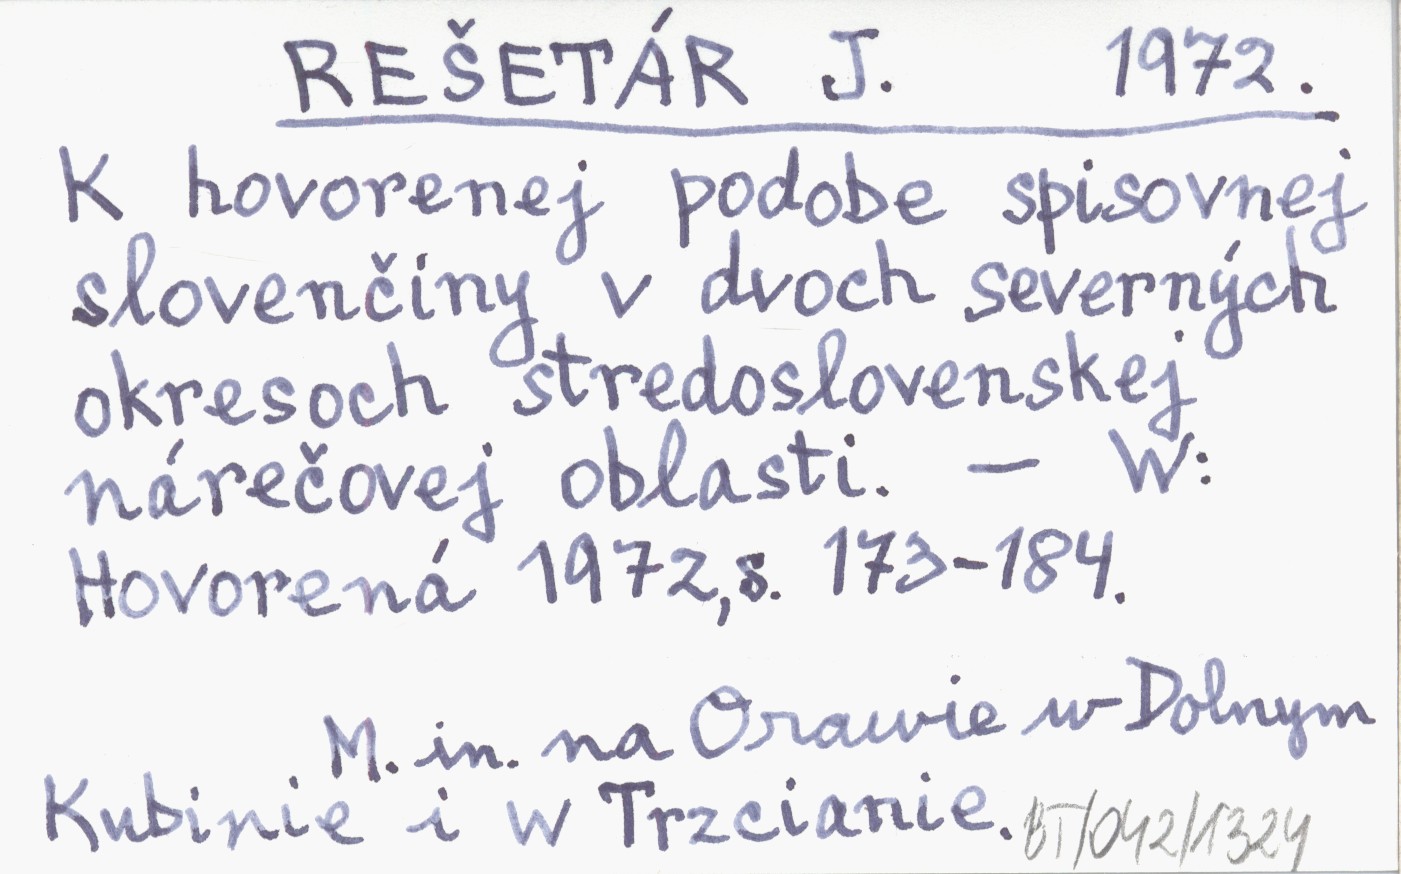 REŠETÁR J. 1972.
K hovorenej podobe spisovnej
slovenčiny v dvoch severných
okresoch stredoslovenskej
nárečovej oblasti. — W:
Hovorená 1972, s. 173-184.
M. in. na Orawie w Dolnym
Kubinie i w Trzcianie.
BT/042/1324